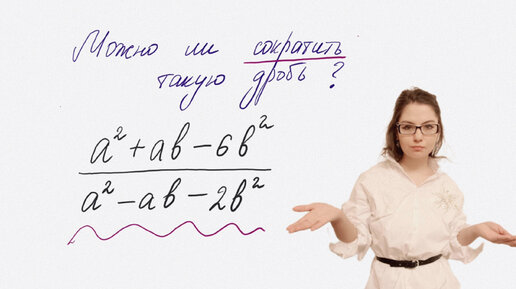 Можно ли сократить
такую дробь ?
a² + ab - 6b²
a² - ab - 2b²